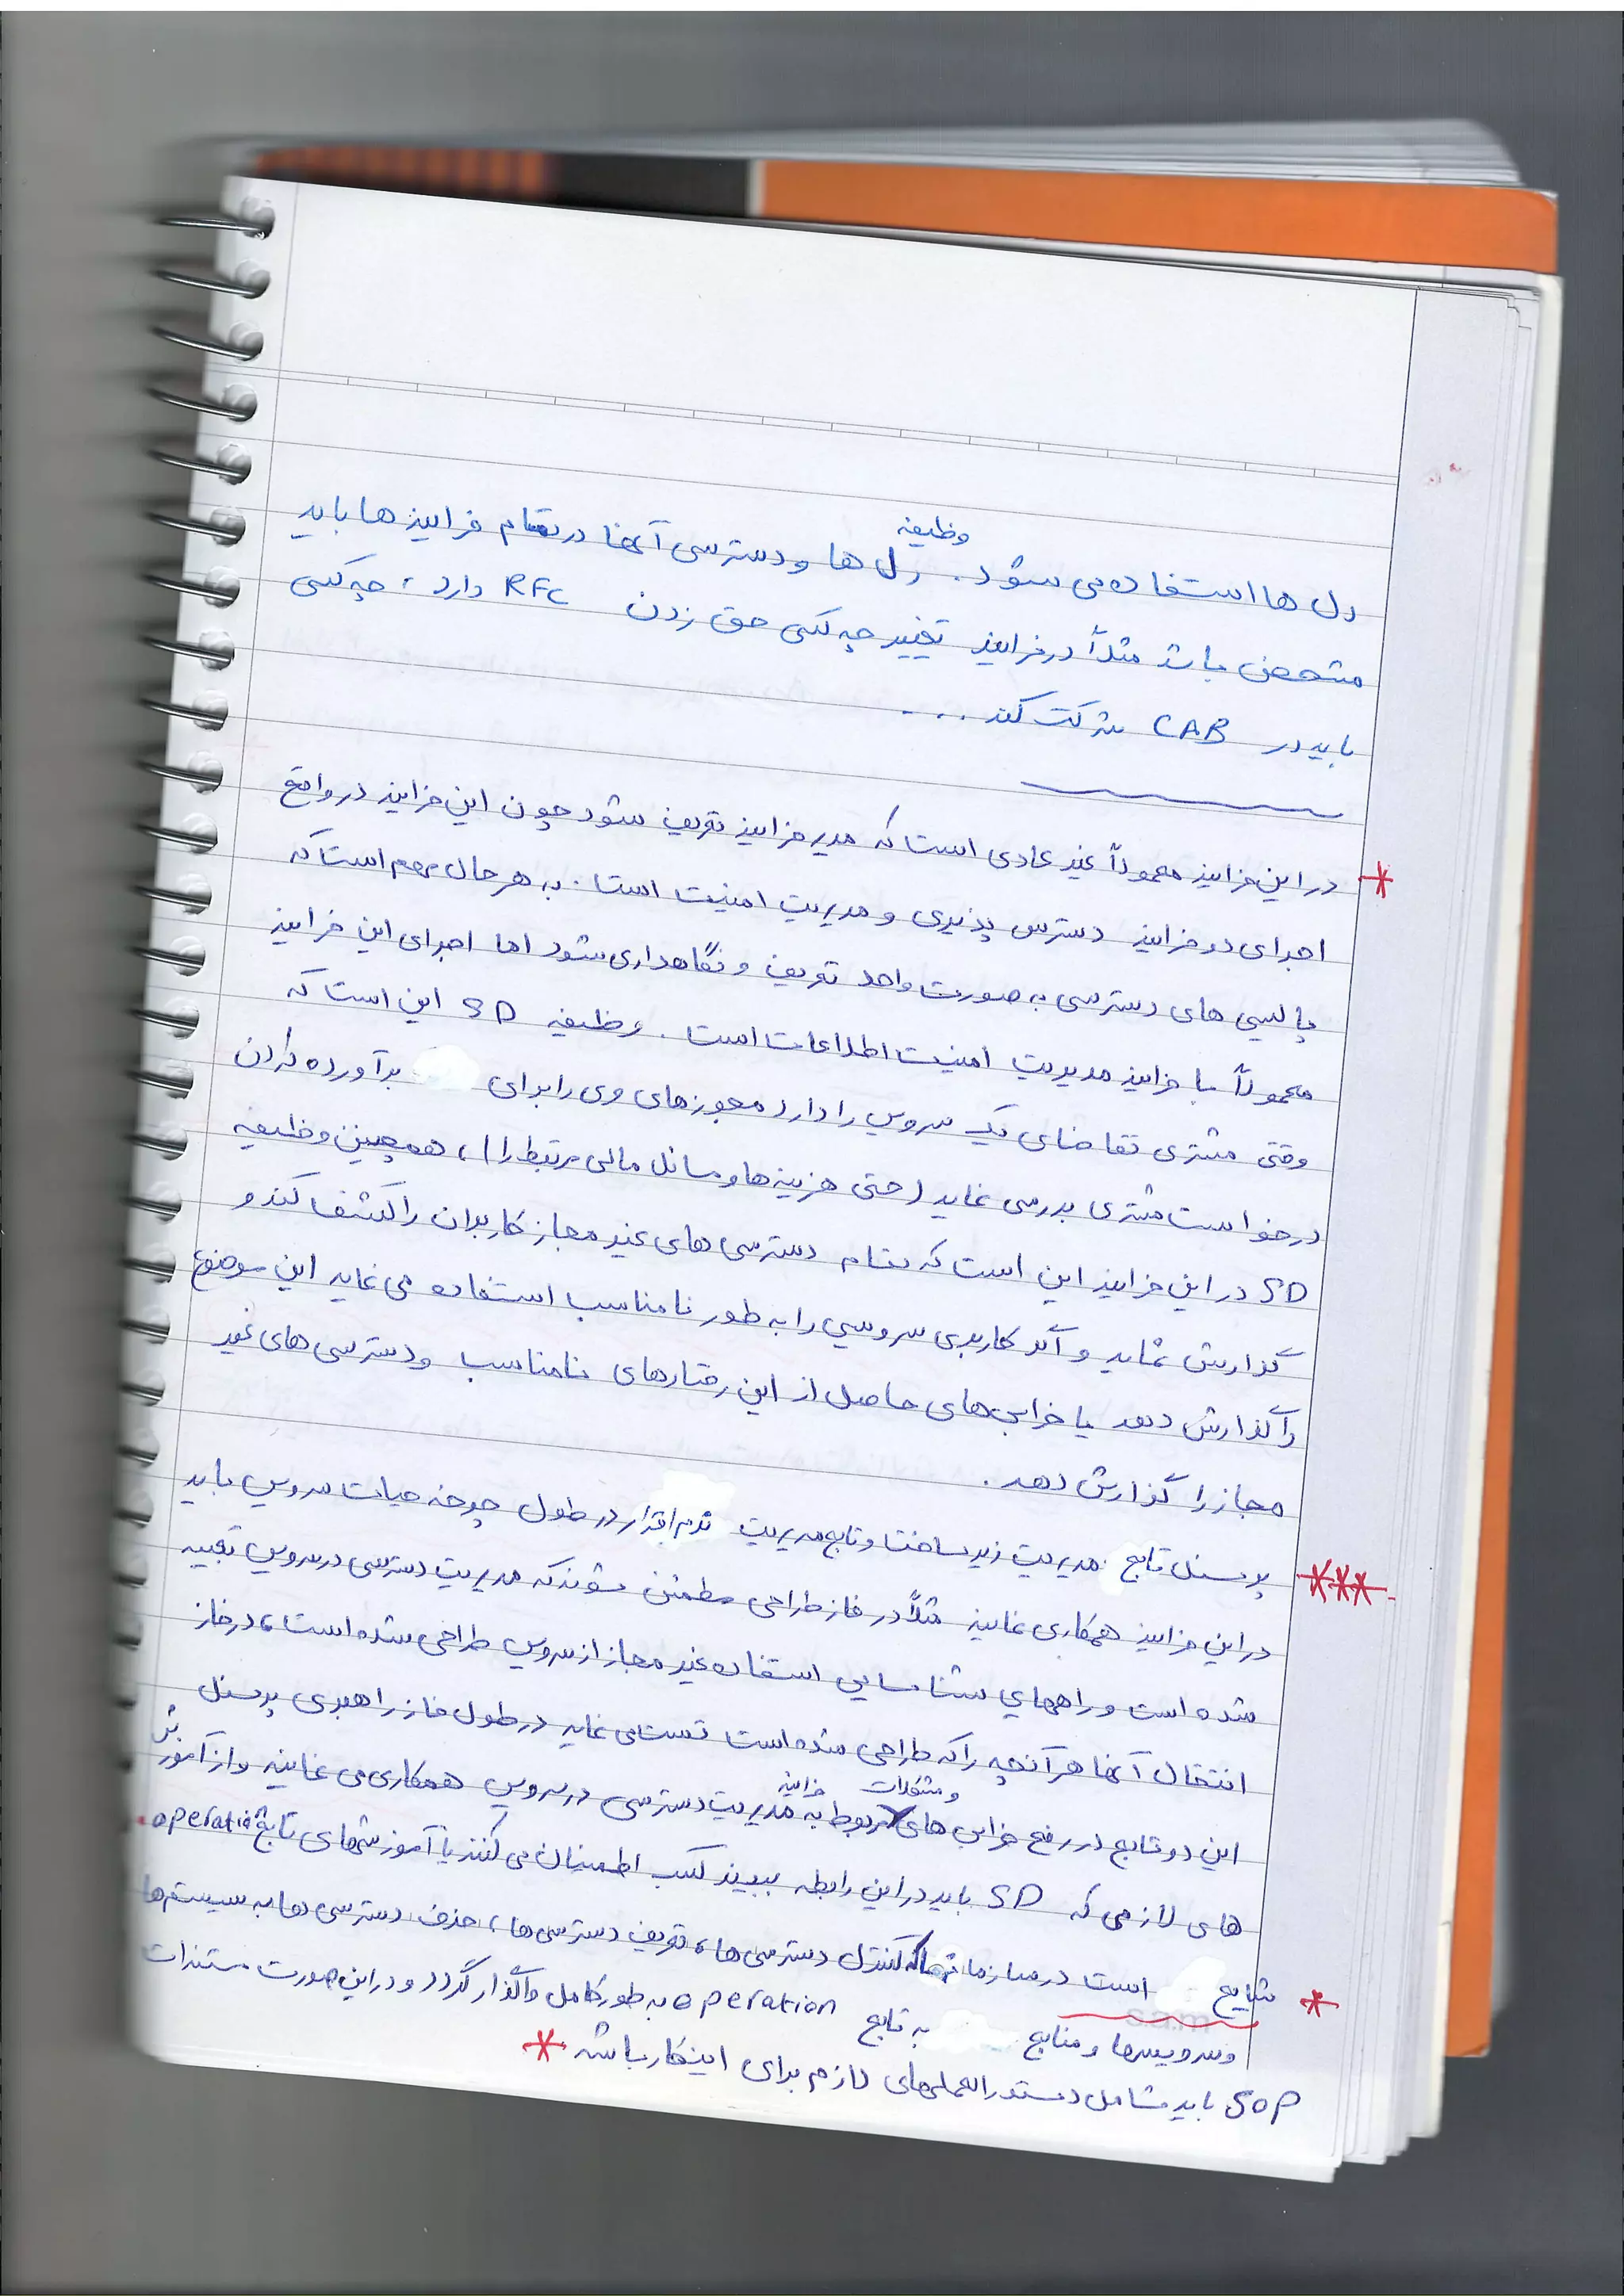 رل ها استفاده می شود. وظیفه رل ها و دسترسی آنها در تمام فرایند ها باید
مشخص باشد مثلاً در فرایند تغییر چه کسی حق زدن RFC دارد، چه کسی
باید در CAB شرکت کند ...
* در این فرایند معمولاً غیر عادی است که مدیر فرایند تعریف شود چون این فرایند در واقع
اجرای دو فرایند دسترس پذیری و مدیریت امنیت است. به هر حال مهم است که
پالیسی های دسترسی به صورت واحد تعریف و نگاهداری شود اما اجرای این فرایند
معمولاً با فرایند مدیریت امنیت اطلاعات است. وظیفه SD این است که
وقتی مشتری تقاضای یک سرویس را دارد مجوزهای وی را برای برآورده کردن
درخواست مشتری بررسی نماید (حتی هزینه ها و مسائل مالی مرتبط را)، همچنین وظیفه
SD در این فرایند این است که تمام دسترسی های غیر مجاز کاربران را کشف کند و
گزارش نماید و اگر کاربری سرویسی را به طور نامناسب استفاده می نماید این موضوع
را گزارش دهد یا خرابی های حاصل از این رفتارهای نامناسب و دسترسی های غیر
مجاز را گزارش دهد.
*** پرسنل تابع مدیریت زیرساخت و تابع مدیریت نرم افزار در طول چرخه حیات سرویس باید
در این فرایند همکاری نمایند مثلاً در فاز طراحی مطمئن شوند که مدیریت دسترسی در سرویس تعبیه
شده است و راههای شناسایی استفاده غیر مجاز از سرویس طراحی شده است، در فاز
انتقال آنها هر آنچه را که طراحی شده است تست می نماید در طول فاز راهبری پرسنل
این دو تابع در رفع خرابی های و مشکلات مربوط به فرایند مدیریت دسترسی در سرویس همکاری می نمایند و از آموزش
های لازمی که SD باید در این رابطه ببیند کسب اطمینان می کنند یا آموزشهای تابع operation.
* شایع است در سازمانها که کنترل دسترسی ها، تعریف دسترسی ها، حذف دسترسی ها به سیستم ها
و سرویسها و منابع به تابع operation به طور کامل واگذار گردد و در این صورت مستندات
SOP باید شامل دستورالعملهای لازم برای اینکار باشد *